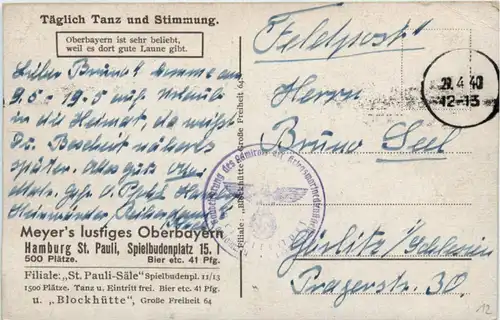 Täglich Tanz und Stimmung.
Oberbayern ist sehr beliebt,
weil es dort gute Laune gibt.
Lieber Bruno! komme am
9.5 - 19.5 auf Urlaub
in die Heimat, da
Bescheid näheres
später. Alles gute
Meyer's lustiges Oberbayern
Hamburg St. Pauli, Spielbudenplatz 15. I
500 Plätze. Bier etc. 41 Pfg.
Filiale: „St. Pauli-Säle" Spielbudenpl. 11/13
1500 Plätze. Tanz u. Eintritt frei. Bier etc. 41 Pfg.
u. „Blockhütte", Große Freiheit 64
Filiale: „Blockhütte" Große Freiheit 64
Feldpost!
28.4.40
12-13
Herrn
Bruno Seel
Görlitz/Schlesien
Pragerstr. 30.
12